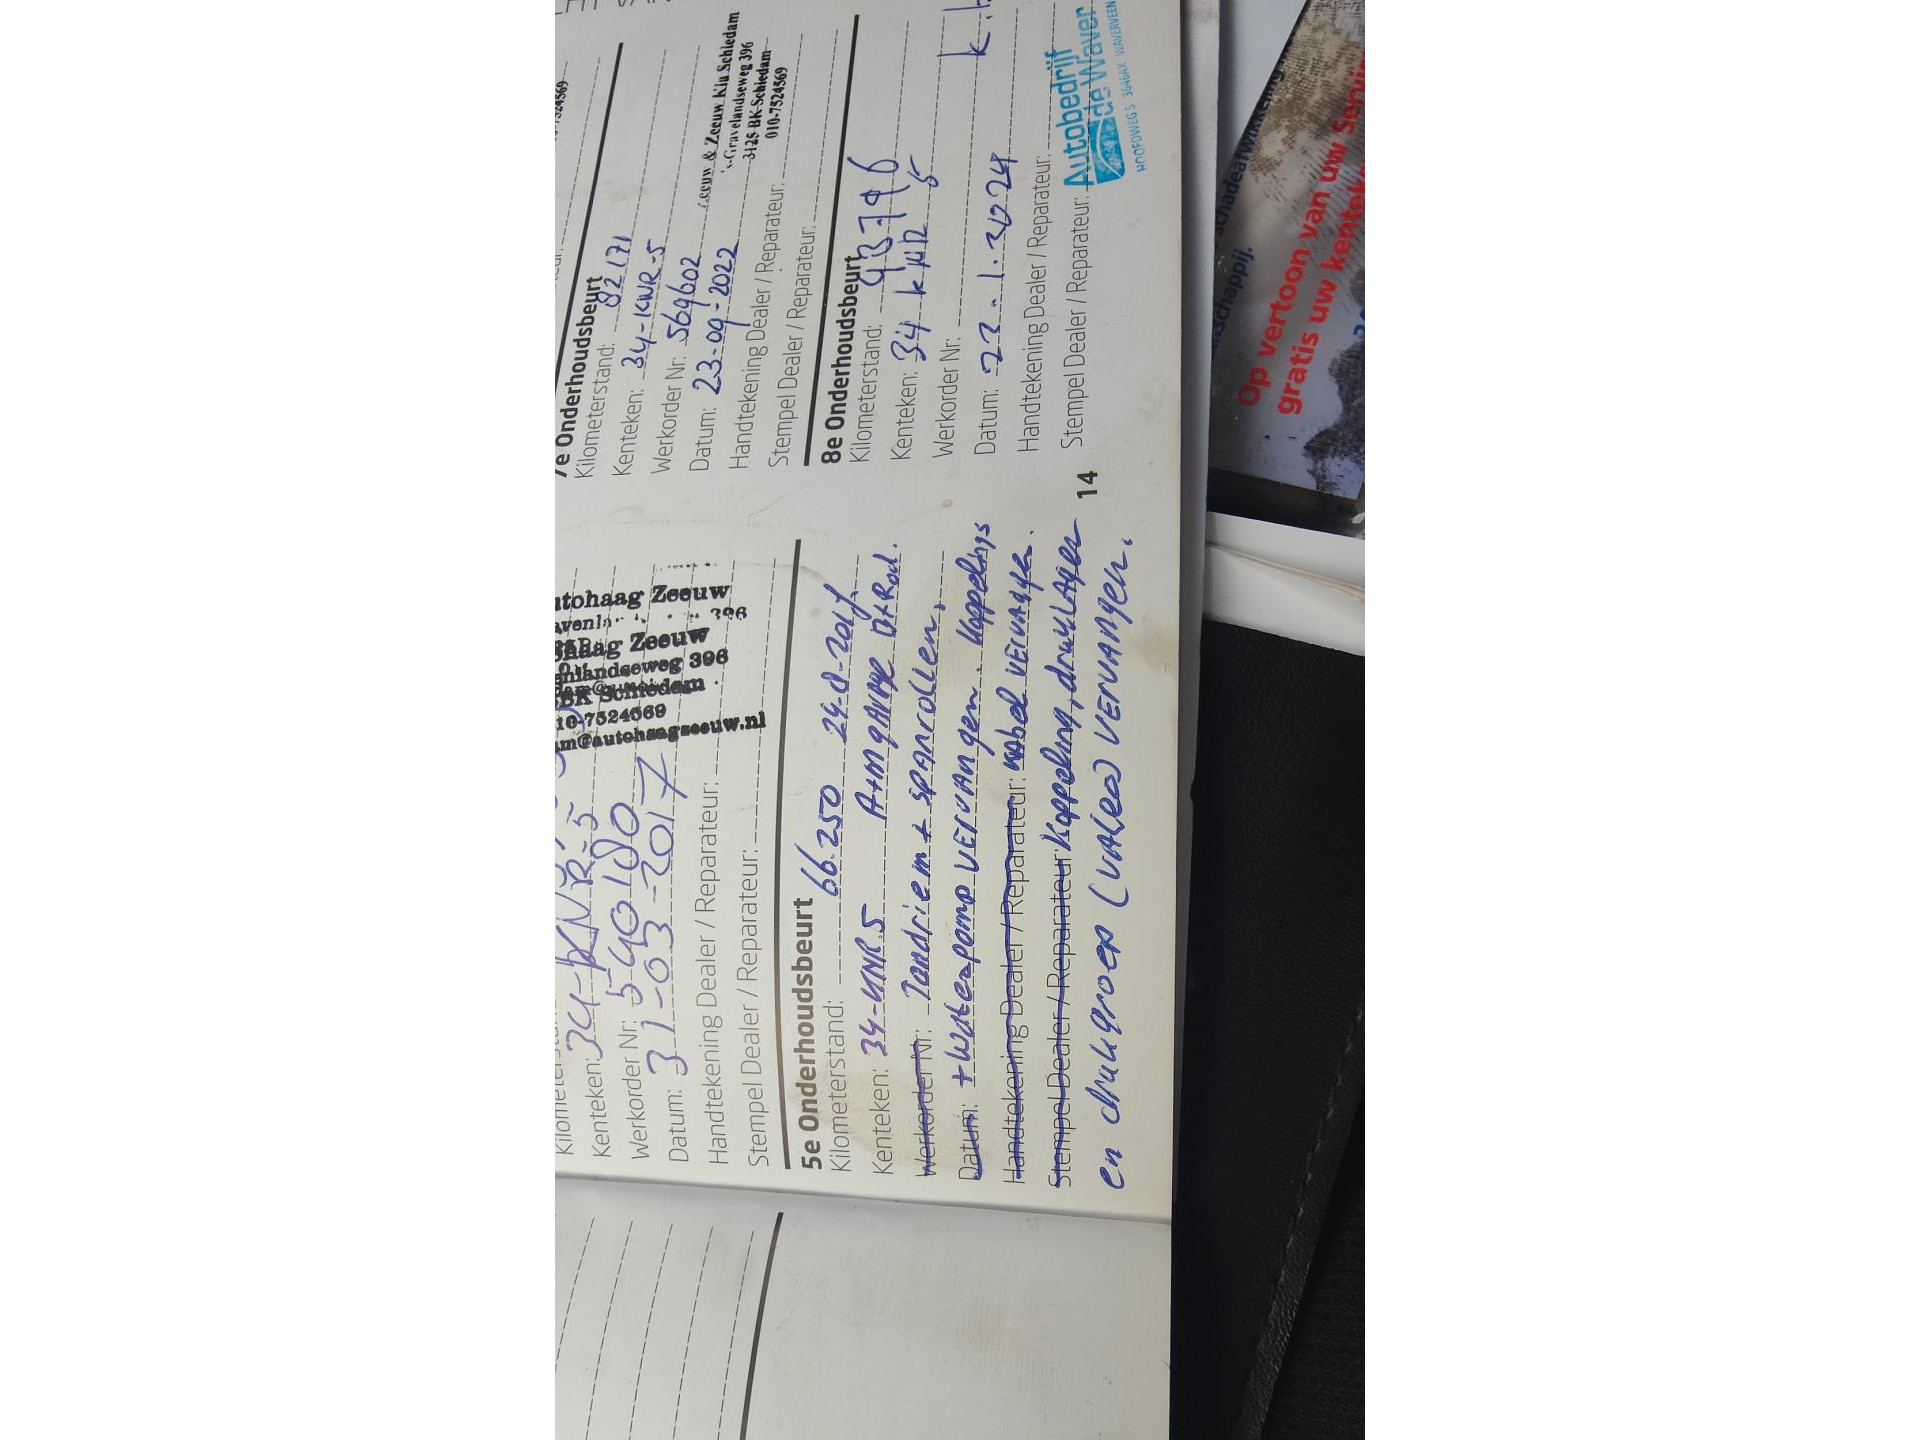 Kenteken: 34-KNR-5
Werkorder Nr: 540180
Datum: 31-03-2017
Handtekening Dealer / Reparateur:
Stempel Dealer / Reparateur:
utohaag Zeeuw
396
haag Zeeuw
nlandseweg 396
BK Schiedam
10-7524569
am@autohaagzeeuw.nl
5e Onderhoudsbeurt
Kilometerstand: 66.250
Kenteken: 34-KNR.5
Werkorder Nr: Tandriem + spanrollen.
Datum: + Waterpomp vervangen. Koppelings
Handtekening Dealer / Reparateur: kabel vervangen.
Stempel Dealer / Reparateur: Koppeling, druklager
en drukgroep (Valeo) vervangen.
7e Onderhoudsbeurt
Kilometerstand: 82171
Kenteken: 34-KNR-5
Werkorder Nr: 569602
Datum: 23-09-2022
Handtekening Dealer / Reparateur:
Stempel Dealer / Reparateur:
eeuw & Zeeuw Kia Schiedam
's-Gravelandseweg 396
3125 BK Schiedam
010-7524569
8e Onderhoudsbeurt
Kilometerstand: 93796
Kenteken: 34 KNR 5
Werkorder Nr:
Datum: 22.1.2024
Handtekening Dealer / Reparateur:
Stempel Dealer / Reparateur:
Autobedrijf
de Waver
HOOFDWEG 5 3646AX WAVERVEEN
14
schadeafwikkeling
tschappij.
Op vertoon van uw Servi
gratis uw kenteke